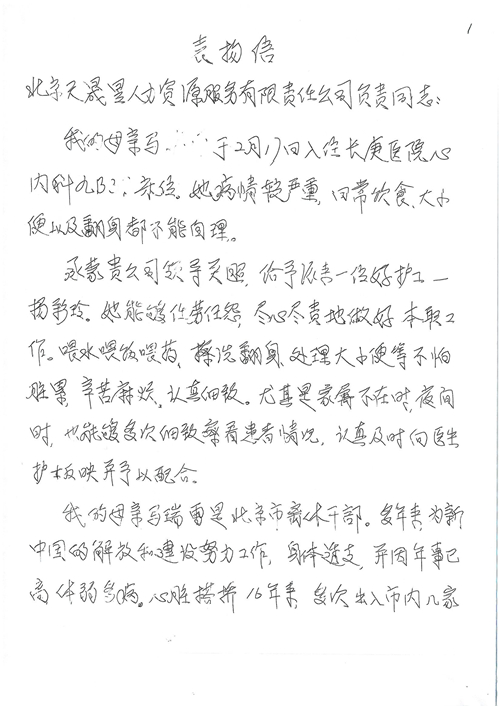 1
表扬信
北京天晟星人力资源服务有限责任公司负责同志：
我的母亲马 于2月17日入住长庚医院心
内科九B3 床位。她病情较严重，日常饮食、大小
便以及翻身都不能自理。
承蒙贵公司领导关照，给予派来一位好护工—
杨彩玲。她能够任劳任怨，尽心尽责地做好本职工
作。喂水喂饭喂药，擦洗翻身，处理大小便等不怕
脏累，辛苦麻烦，认真细致。尤其是家属不在时，夜间
时，也能够多次细致察看患者情况，认真及时向医生
护士反映并予以配合。
我的母亲马瑞雪是北京市离休干部。多年来，为新
中国的解放和建设努力工作，身体透支，并因年事已
高体弱多病。心脏搭桥16年来，多次出入市内几家